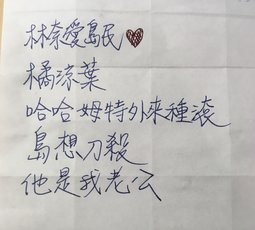 林奈愛島民
橘涼葉
哈哈姆特外來種滾
島想刀殺
他是我老公